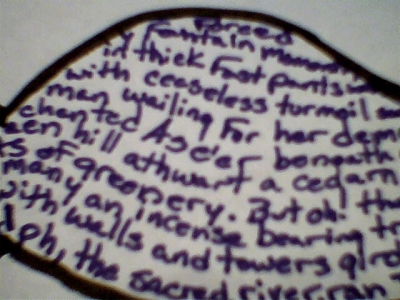 Forced
y Fantain momently
in thick Fast pants
with ceaseless turmoil
man wailing For her dem
chanted As e'er beneath
een hill athwart a cedarn
ts of greenery. But oh! th
many an incense bearing tr
with walls and towers gird
lph, the sacred river, ran